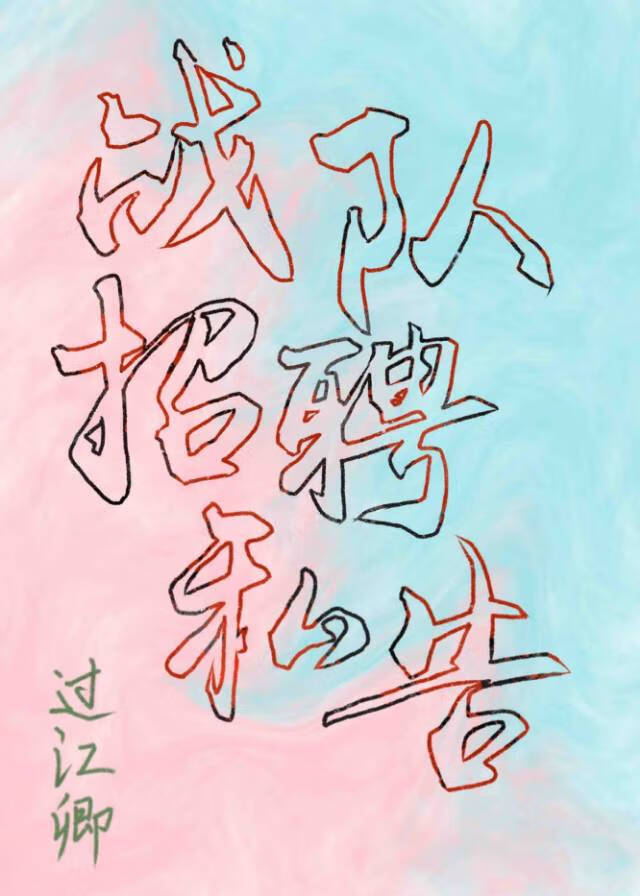 战队
招聘
私告
过江卿